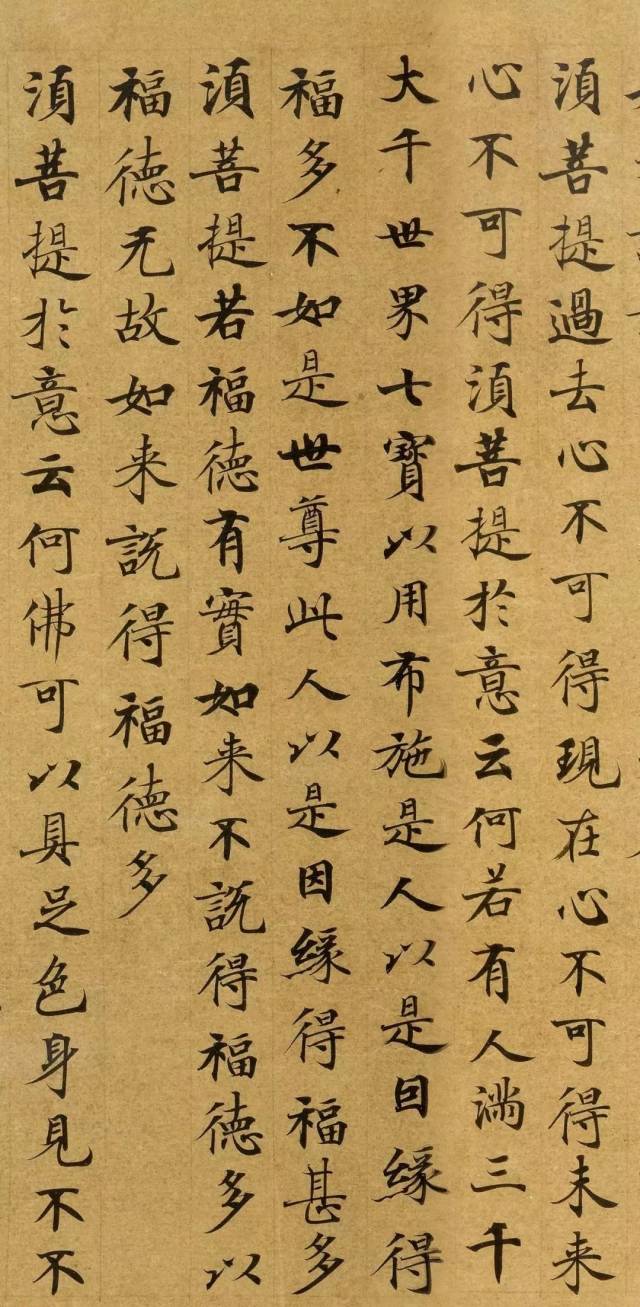 湏菩提過去心不可得現在心不可得未来
心不可得湏菩提扵意云何若有人滿三千
大千世界七寶以用布施是人以是因緣得
福多不如是世尊此人以是因緣得福甚多
湏菩提若福德有實如来不説得福德多以
福德无故如来説得福德多
湏菩提扵意云何佛可以具足色身見不不